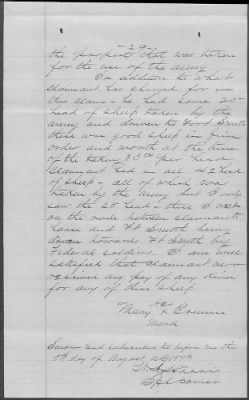 -29-
the property that was taken
for the use of the army
In addition to what
claimant has charged for in
this claim - he had some 20
head of sheep taken by the
army and driven to Ford Smith
these were good sheep in fine
order and worth at the time
of the taking $3.00 per head
Claimant had in all 42 head
of sheep - all of which was
taken by the army but I only
saw the 20 head - these I met
on the road between claimants
house and Ft Smith being
driven towards Ft Smith by
Federal soldiers. I am well
satisfied that claimant never
received any pay of any kind
for any of these sheep
her
Mary X
mark
Sworn and subscribed to before me this
day of August AD
Spl Comr